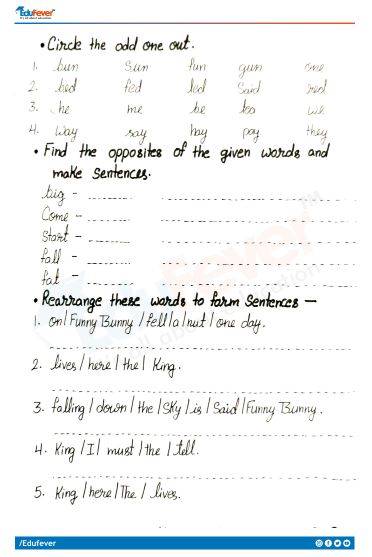 EduFever
It's all about education
• Circle the odd one out.
1. bun Sun fun gun one
2. bed fed led Said red
3. he me be tea we
4. way say hay pay they
• Find the opposites of the given words and
make Sentences.
big - ........ ........
Come - ........ ........
Start - ........ ........
fall - ........ ........
fat - ........ ........
• Rearrange these words to form Sentences —
1. on/Funny Bunny/fell/a/nut/one day.
2. lives/here/the/King.
3. falling/down/the/Sky/is/Said/Funny Bunny.
4. King/I/must/the/tell.
5. King/here/The/lives.
EduFever™
all about education
/Edufever